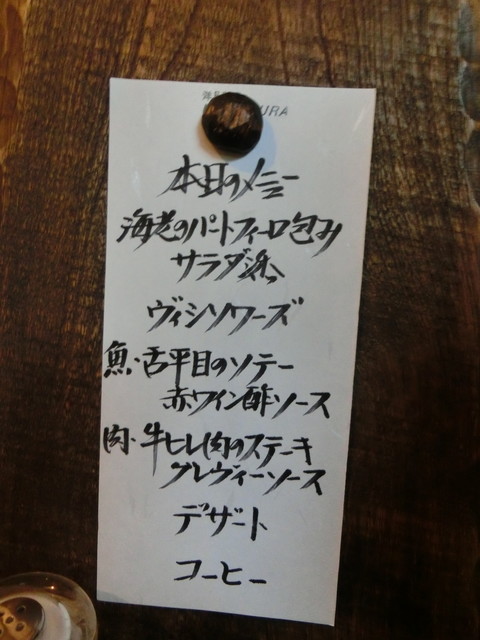 URA
本日のメニュー
海老のパートフィーロ包み
サラダ添え
ヴィシソワーズ
魚・舌平目のソテー
赤ワイン酢ソース
肉・牛ヒレ肉のステーキ
グレヴィーソース
デザート
コーヒー